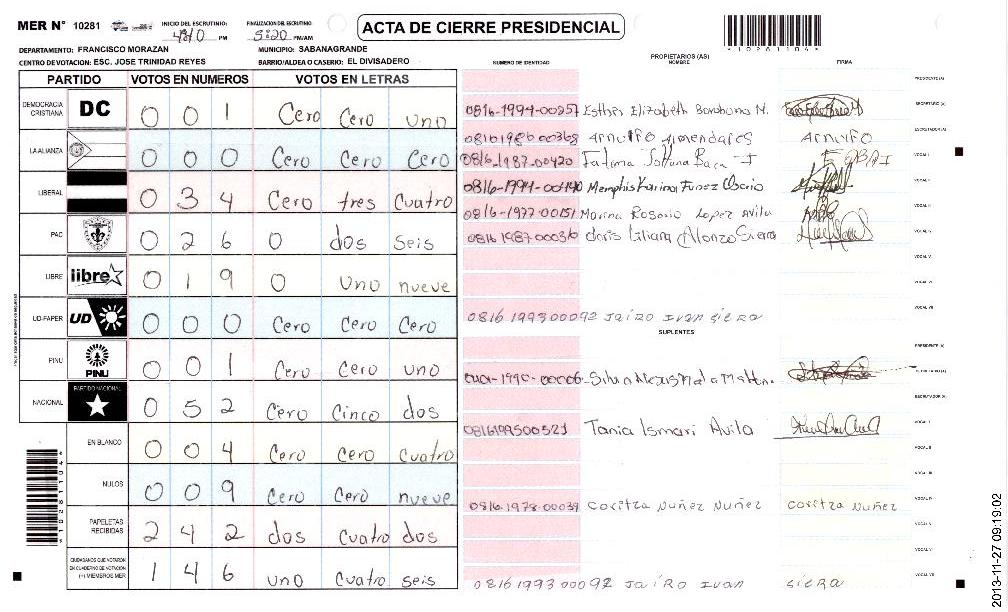 MER Nº 10281 INICIO DEL ESCRUTINIO: 4:40 PM FINALIZACION DEL ESCRUTINIO 5:20 PM/AM
ACTA DE CIERRE PRESIDENCIAL
*10281104*
DEPARTAMENTO: FRANCISCO MORAZAN MUNICIPIO: SABANAGRANDE
CENTRO DE VOTACION: ESC. JOSE TRINIDAD REYES BARRIO/ALDEA O CASERIO: EL DIVISADERO
NUMERO DE IDENTIDAD PROPIETARIOS (AS) NOMBRE FIRMA
PARTIDO VOTOS EN NUMEROS VOTOS EN LETRAS
PRESIDENTE (A)
DEMOCRACIA CRISTIANA DC 0 0 1 Cero Cero uno
0816-1994-00257 Esther Elizabeth M. SECRETARIO (A)
0816 1986 00368 Arnulfo Armendares Arnulfo ESCRUTADOR (A)
LA ALIANZA 0 0 0 Cero Cero Cero
0816-1987-00420 Fatima VOCAL I
LIBERAL 0 3 4 Cero tres Cuatro
0816-1994-00440 Memphis Karina Funez VOCAL II
0816-1977-00151 Marina Rosario Lopez Avila VOCAL III
PAC 0 2 6 0 dos seis
0816 1987 00036 doris Liliana Alonzo Sierra VOCAL IV
VOCAL V
LIBRE libre 0 1 9 0 uno nueve
VOCAL VI
UD-FAPER UD 0 0 0 Cero Cero Cero
0816 1993 00092 Jairo Ivan Siera VOCAL VII
SUPLENTES
PRESIDENTE (A)
PINU PINU 0 0 1 Cero Cero uno
SECRETARIO (A)
NACIONAL PARTIDO NACIONAL 0 5 2 Cero Cinco dos
ESCRUTADOR (A)
0816199500521 Tania Ismari Avila VOCAL I
EN BLANCO 0 0 4 Cero Cero Cuatro
VOCAL II
VOCAL III
NULOS 0 0 9 Cero Cero nueve
0816-1978-00039 Coritza Nuñez Nuñez Coritza Nuñez VOCAL IV
PAPELETAS RECIBIDAS 2 4 2 dos Cuatro dos
VOCAL V
VOCAL VI
CIUDADANOS QUE VOTARON EN CUADERNO DE VOTACION (+) MIEMBROS MER 1 4 6 uno Cuatro seis
0816 1993 00092 Jairo Ivan Siera VOCAL VII
*10281104*
2013-11-27 09:19:02